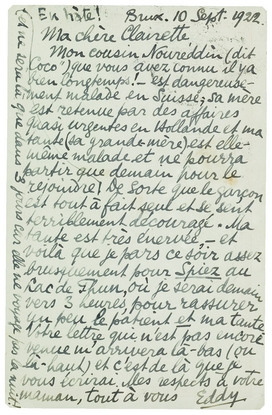 En hâte! Brux. 10 Sept. 1922.
Ma chère Clairette
Mon cousin Noureddin (dit
"Coco") que vous avez connu il y a
bien longtemps! est dangereuse-
ment malade en Suisse; sa mère
est retenue par des affaires
quasi urgentes en Hollande et ma
tante (sa grand-mère) est elle-
même malade, et ne pourra
partir que demain pour le
rejoindre! De sorte que le garçon
est tout à fait seul et se sent
terriblement découragé. Ma
tante est très énervée – et
voilà que je pars ce soir assez
brusquement pour Spiez au
Lac de Thun, où je serai demain
vers 3 heures, pour rassurer
un peu le patient et ma tante
Votre lettre qui n'est pas encore
venue m'arrivera là-bas (ou
là-haut) et c'est de là que je
vous écrirai. Mes respects à votre
maman, tout à vous Eddy
que dans 3 jours car elle ne voyage pas la nuit